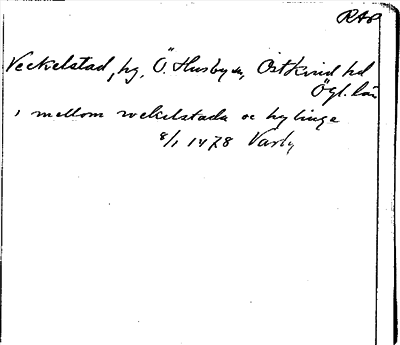 RAP
Veckelstad, hg, Ö. Husby sn, Östkind hd
Ögl. län
, mellom wekelstada oc hylinge
8/1 1478 Varby